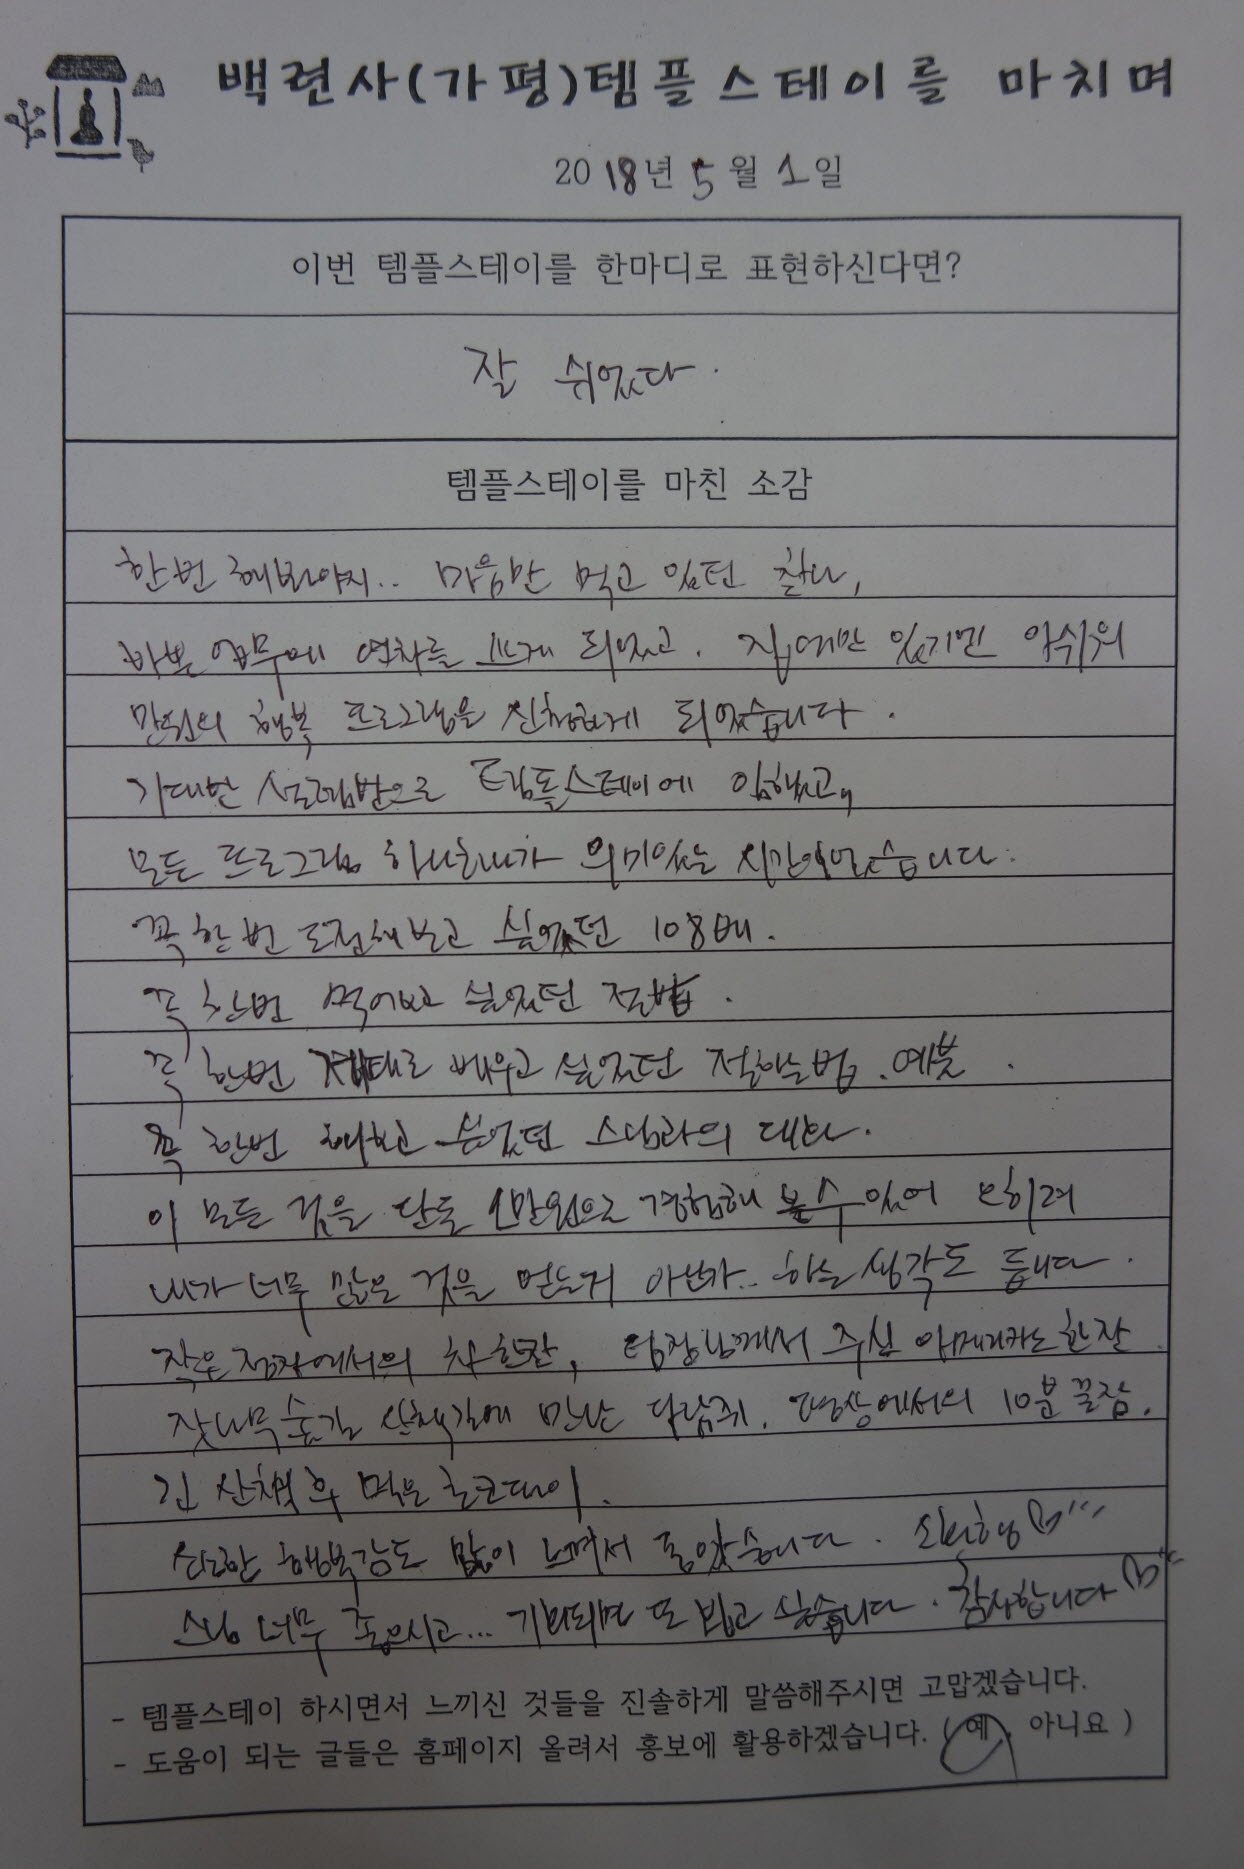 백련사(가평)템플스테이를 마치며
2018년 5월 1일
이번 템플스테이를 한마디로 표현하신다면?
잘 쉬었다.
템플스테이를 마친 소감
한번 해봐야지.. 마음만 먹고 있던 찰나,
바쁜 업무에 연차를 쓰게 되었고. 집에만 있기엔 아쉬워
만원의 행복 프로그램을 신청하게 되었습니다.
기대반 설렘반으로 템플스테이에 임했고,
모든 프로그램 하나하나가 의미있는 시간이었습니다.
꼭 한번 도전해보고 싶었던 108배.
꼭 한번 먹어보고 싶었던 절밥.
꼭 한번 제대로 배우고 싶었던 절하는법. 예불.
꼭 한번 해보고 싶었던 스님과의 대화.
이 모든 것을 단돈 1만원으로 경험해 볼수 있어 오히려
내가 너무 많은 것을 얻는거 아닌가.. 하는 생각도 듭니다.
작은 정자에서의 차 한잔, 팀장님께서 주신 아메리카노 한잔.
잣나무 숲길 산책길에 만난 다람쥐. 평상에서의 10분 꿀잠.
긴 산책 후 먹은 초코파이.
소소한 행복감도 많이 느껴서 좋았습니다. 소확행
스님 너무 좋으시고... 기회되면 또 뵙고 싶습니다. 감사합니다
- 템플스테이 하시면서 느끼신 것들을 진솔하게 말씀해주시면 고맙겠습니다.
- 도움이 되는 글들은 홈페이지 올려서 홍보에 활용하겠습니다. ( 예 , 아니요 )